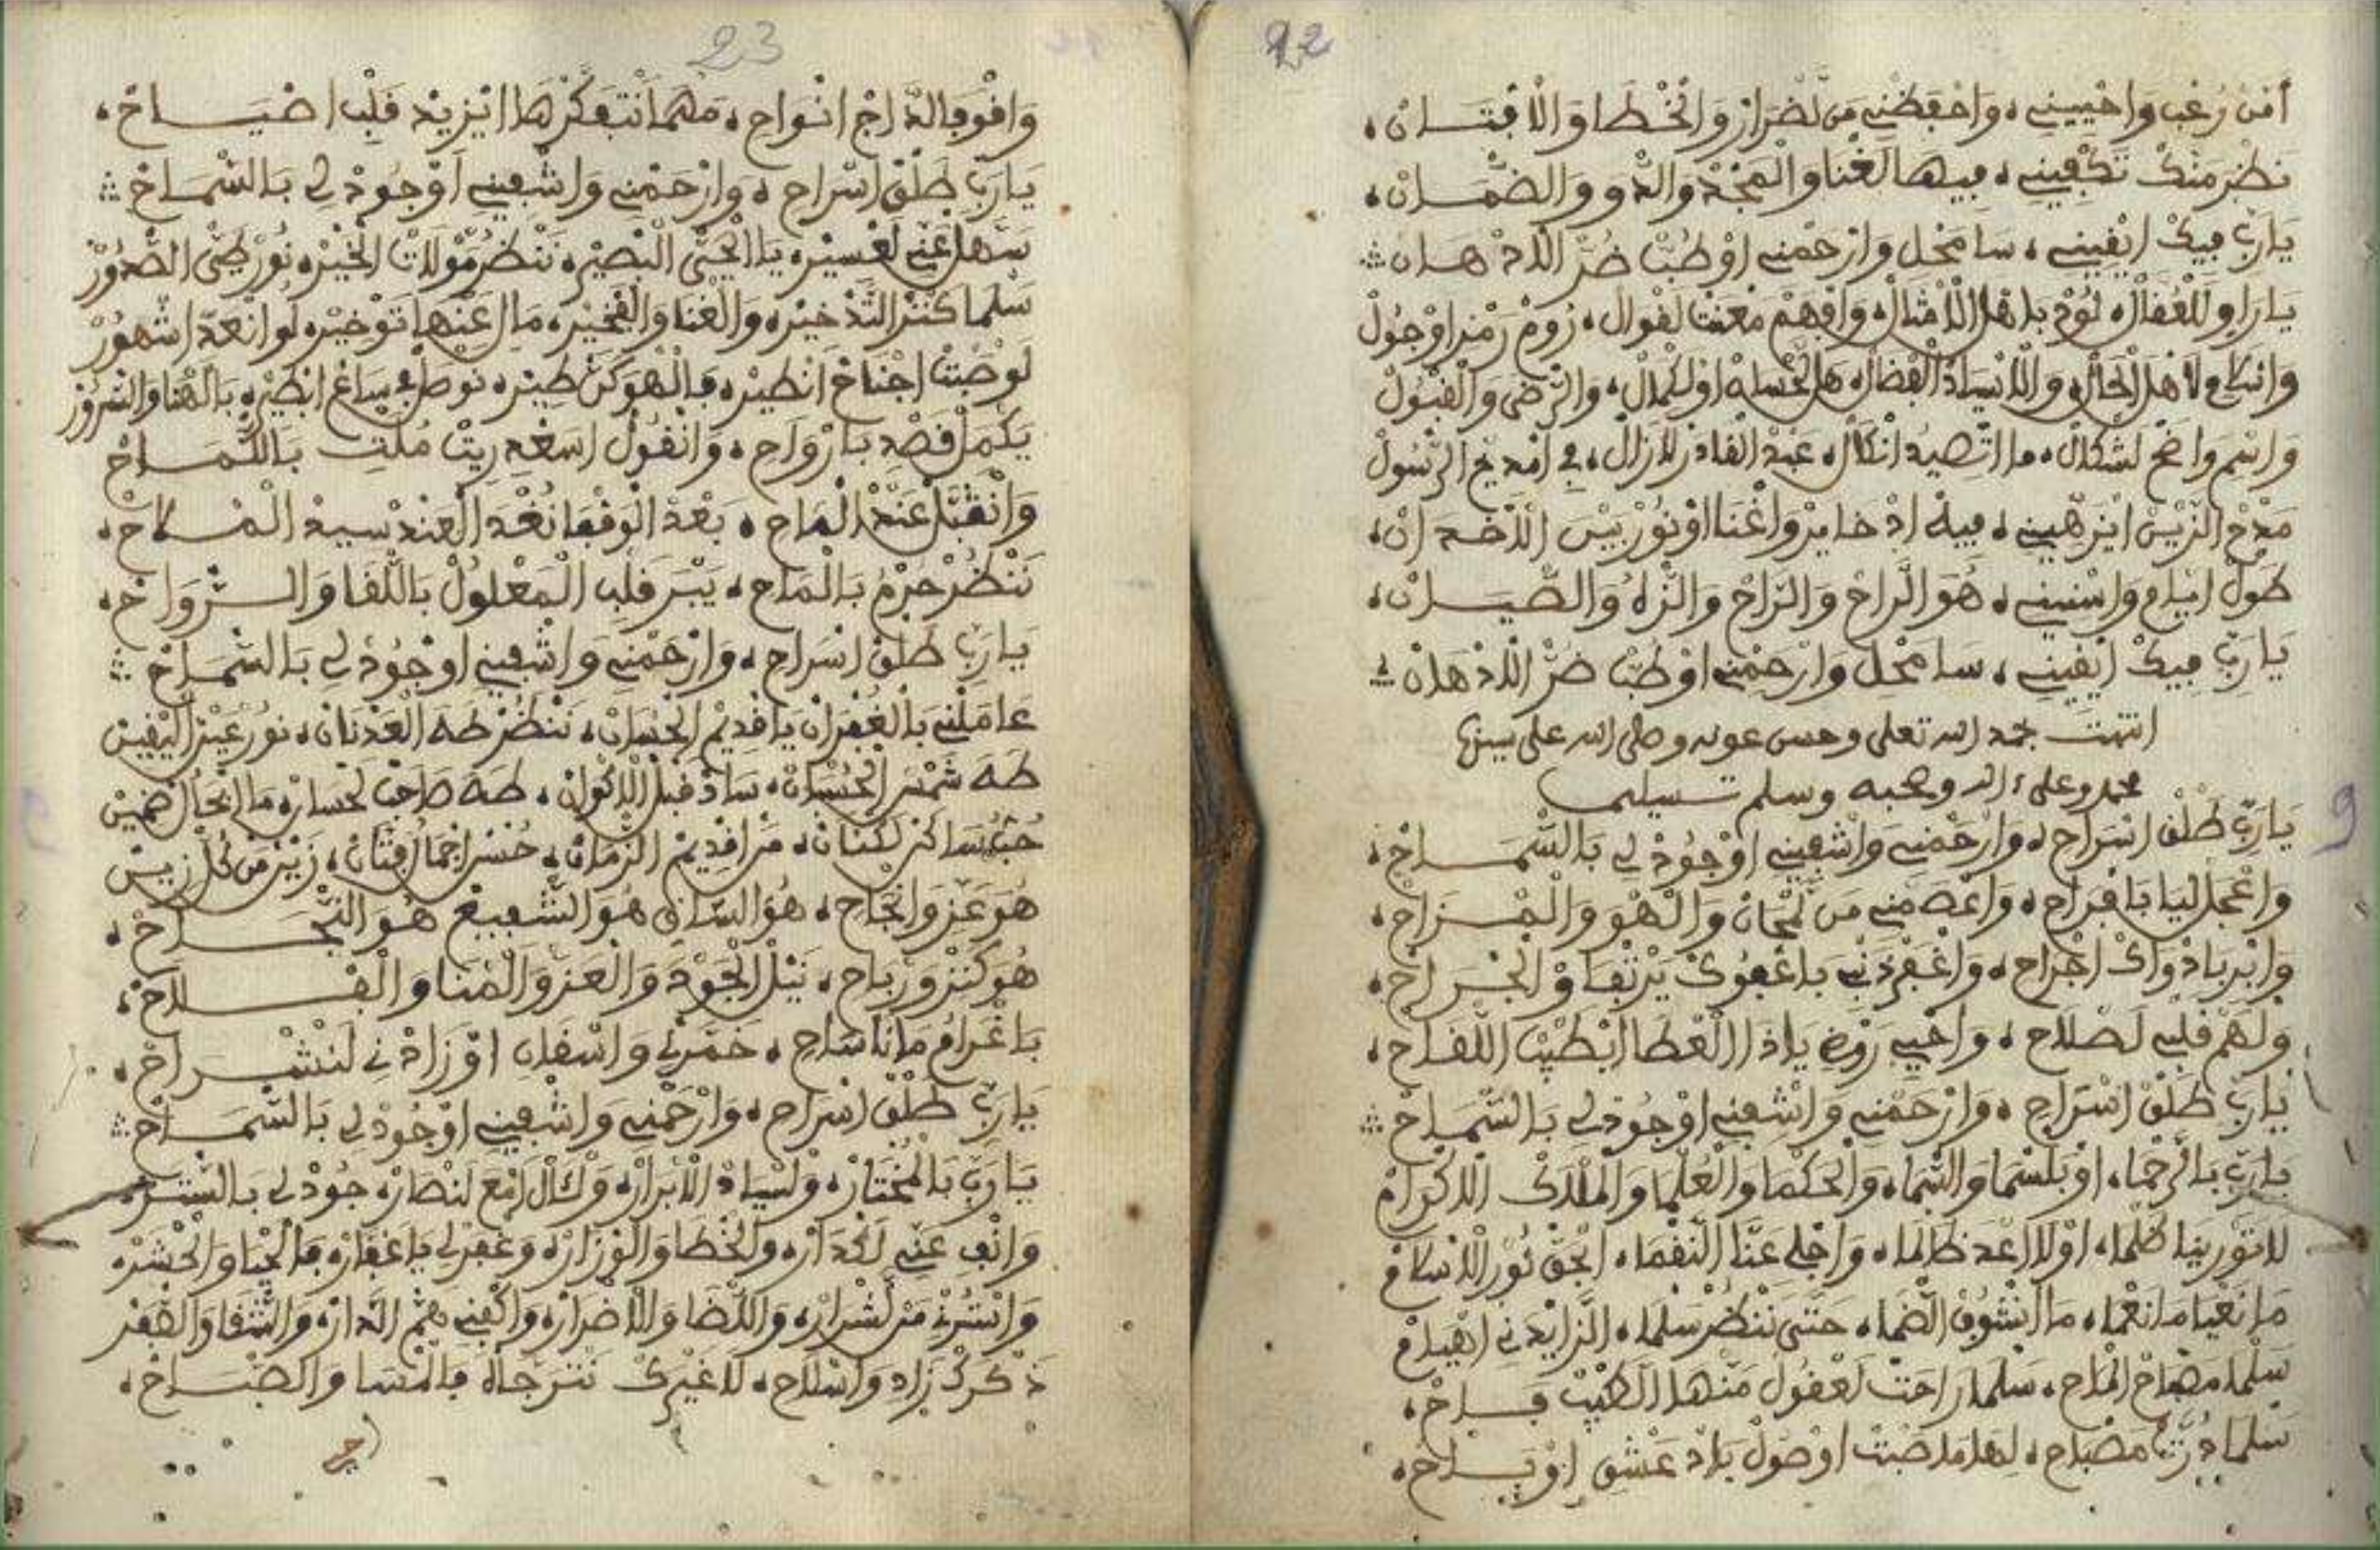 22
أمن رعب واحييني، واحفظني من لضرار والخطا والافتان،
نظر منك تكفيني، فيها لغنا والمجد والدو والضمان،
يا رب فيك ايقيني، سامحل وارحمني اوطب ضر اللاذهان
يا راو للغفال، لوذ باهل اللامثال، وافهم معنت لقوال، روم رمز اوجول
لاهل الحال، والاسياد الفضال، هل الحسان اولكمال، والرضى والقبول
واسم واضح لشكال، ما اتصيد انكال، عبد القادر لازال، في امديح الرسول
مدح الزين ايزهيني، فيه اذخاير واغنا اونور بين اللاخدان،
طول ايام واسنيني، هو الراح والراح والنزاه والصيان،
يا رب فيك ايقيني، سامحل وارحمني اوطب ضر اللاذهان
انتهت بحمد الله تعلى وحسن عونه وصلى الله على سيدنا
محمد وعلى ءاله وصحبه وسلم تسليما
9
يا رب طلق اسراح، وارحمني واشفيني اوجود لي بالسماح،
واعجل ليا بافراح، واعصمني من لمحان والهو والقزاح،
وابر بادواك اجراح، واغفر ذنبي باعفوك يرتفاو الجراح،
ولهم قلبي لصلاح، واحيي روح ياذا العطا ابطيب اللقاح،
يا رب طلق اسراح، وارحمني واشفيني اوجود لي بالسماح
يا رب بالرحما، اوبلسما والسما، والحكما والعلما والملاك اللاكرام
لاتورينا كلما، اولا اعد ظالما، واجلي عنا النقما، ابحق نور اللانسام
ما نعيا ما نعما، ما انشوف الضما، حتى ننظر سلما، الزايد ني اهيام
سلما مصباح الماح، سلما راحت لعقول منها الطيب فاح،
سلما درت مصباح، لهل ما صبت اوصول باد عشق اوباح،
23
وافوفا الداج انواح، مهما انتفكرها ايزيد قلب اضياح،
يا رب طلق اسراح، وارحمني واشفيني اوجود لي بالسماح
سهل عني لعسير، يا الحي البصير، ننظر مولات الخير، نور ضي الصدور
سلما كنز التذخير، والغنا والفخير، مال عنها توخير، لو انعد اشهور
لو صبت اجناح انطير، فالهو كن طير، نوصل في ساع انطير، بالهنا والسرور
يكمل قصد بارواح، وانقول اسعد ريت ملت بالكماح
وانقبل عند الماح، بعد الوقفا نغد العند سيد الملاح،
ننظر حرم بالماح، يبر قلب المعلول باللقا والرواح،
يا رب طلق اسراح، وارحمني واشفيني اوجود لي بالسماح
عاملني بالغفران يا قديم الحسان، ننظر طه العدنان، نور عين اليقين
طه شمس الحسان، ساد قبل اللاكوان، طه صاحب لحسان، مال الحال ضمين
حب ساكن لكنان، من اقديم الزمان، حسن اجمال فتان، زين من كل زين
هو عز وانجاح، هو السان هو الشفيع هو النجاح،
هو كنز ورباح، نيل الجود والعز والمنا والفلاح،
باغرام ما ناساح، خمرني واسقان اوزادني لنشراح،
يا رب طلق اسراح، وارحمني واشفيني اوجود لي بالسماح
يا رب بالمختار، ولسياد الابرار، وكال امع لنصار، جود لي بالستر،
وانف عني لكدار، والخطا والوزار، وغفر لي يا غفار، فالحيا والحشر،
واسترن من لشرار، واللضا والاضرار، واكفني هم الدار، والشفا والقفر
ذكرك زاد واسلاح، لا غيرك نترجاه فالمسا والصباح،